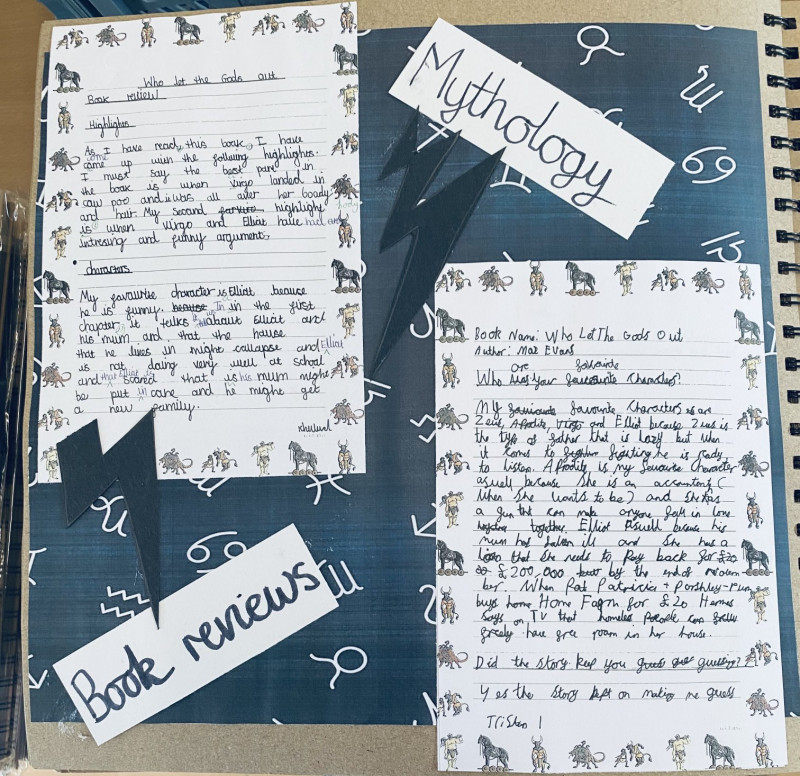 Who let the Gods out
Book review
Highlights
As I have read, this book, I have
came come up with the following highlights.
I must say the best part in
the book is when virgo landed in
cow poo and it was all over her boady body
and hair. My second favourite highlight
is when virgo and Elliot have had an
intresing and funny argument.
characters
My favourite character is Elliot becauce
he is funny. because In in the first
chapter, it talks about Elliot and
his mum and that the house
that he lives in might collapse and Elliot
is not doing very well at school
and that Elliot is scared that is his mum might
be put in care and he might get
a new family.
Mythology
Book Name: Who Let The Gods Out
Author: Maz Evans
are favourite
Who Are Your favourite Characters?
My favourite favourite Characters are
Zeus, Afrodite, Virgo and Elliot because Zeus is
the type of father that is lazy but when
it comes to fighting he is ready
to listen. Afrodite is my favourite character
aswell because she is an accountent (
when she wants to be) and she has
a gun that can make anyone fall in love
together. Elliot Aswell because his
mum has fallen ill and she has a
loan that she needs to Pay back for £20
£200,000 by the end of
ber. When Pat Patricia + Porshley-Plum
buys home Home Farm for £20 Hermes
says on TV that homeless People can
freely have free room in her house.
Did the story keep you guess guessing?
Yes the story kept on making me guess
Tristan
Book reviews